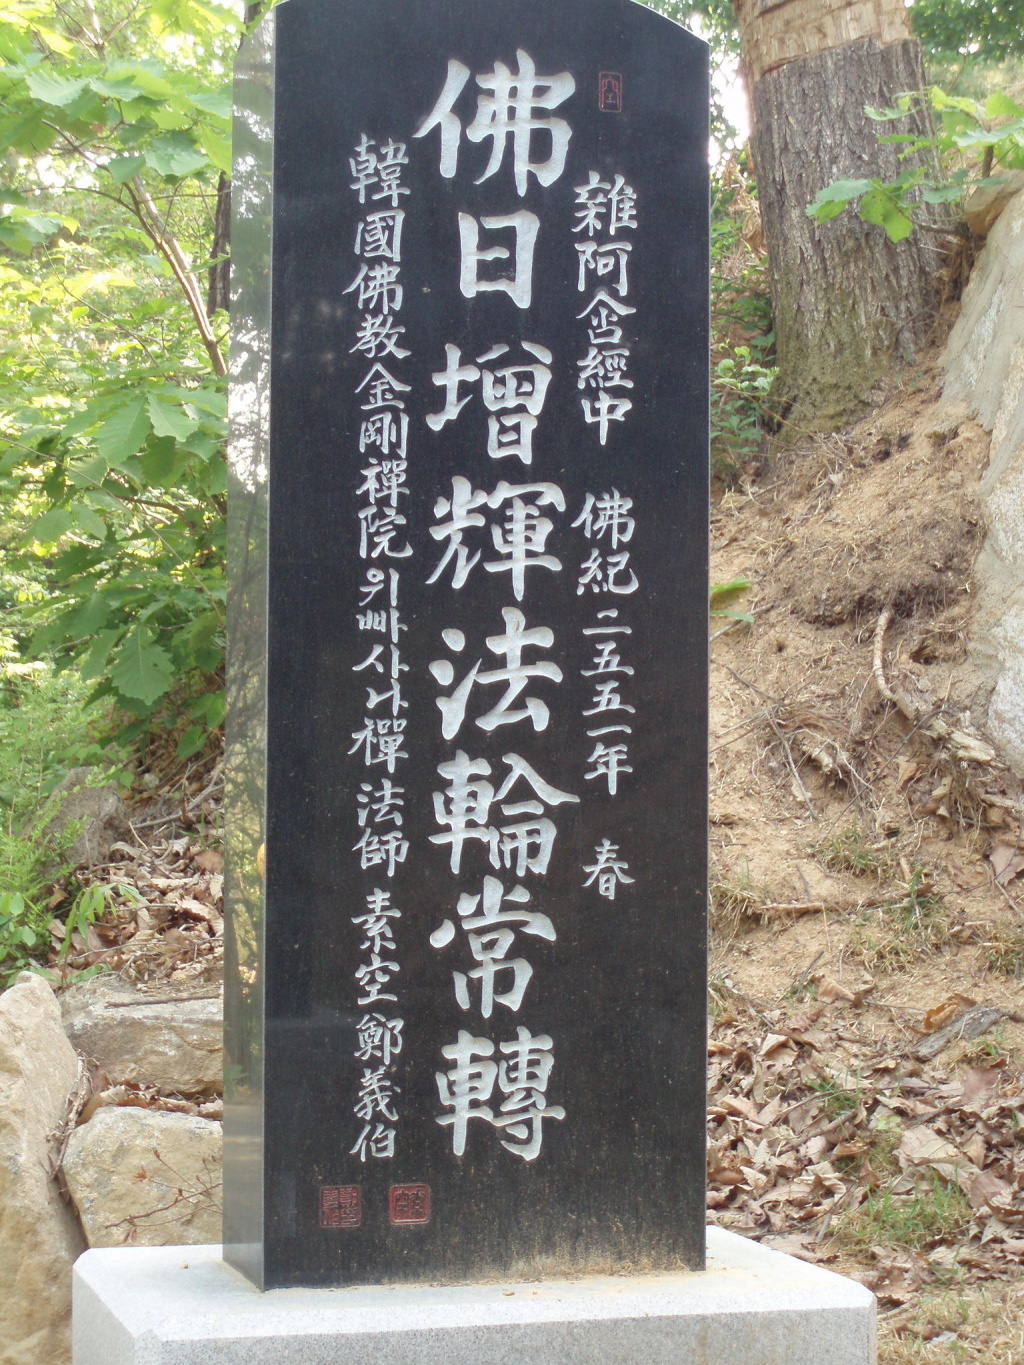 雜阿含經中 佛紀二五五一年 春
佛日增輝法輪常轉
韓國佛教金剛禪院위빠사나禪法師 素空鄭義伯